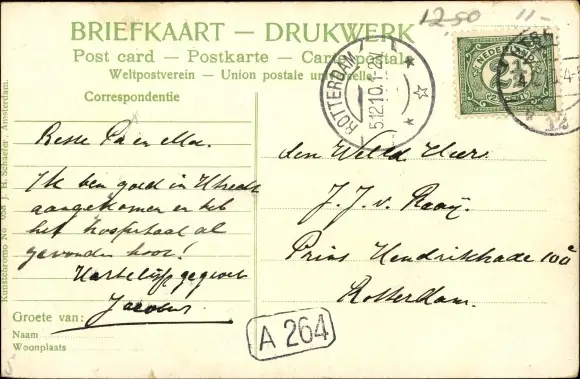 12.50 11-
BRIEFKAART — DRUKWERK
Post card — Postkarte — Carte postale
Weltpostverein — Union postale universelle
Correspondentie
ROTTERDAM
5.12.10.1-2N
NEDERLAND
2½
Beste Pa en Moe.
Ik ben goed in Utrecht
aangekomen en heb
het hospitaal al
gevonden hoor!
Hartelijk gegroet
Jacobus
Groete van:
Naam
Woonplaats
den Weled Heer
J. J. v. Raaij.
Prins Hendrikkade 100a
Rotterdam.
A 264
Kunstchromo No. 938 J. H. Schaefer, Amsterdam.